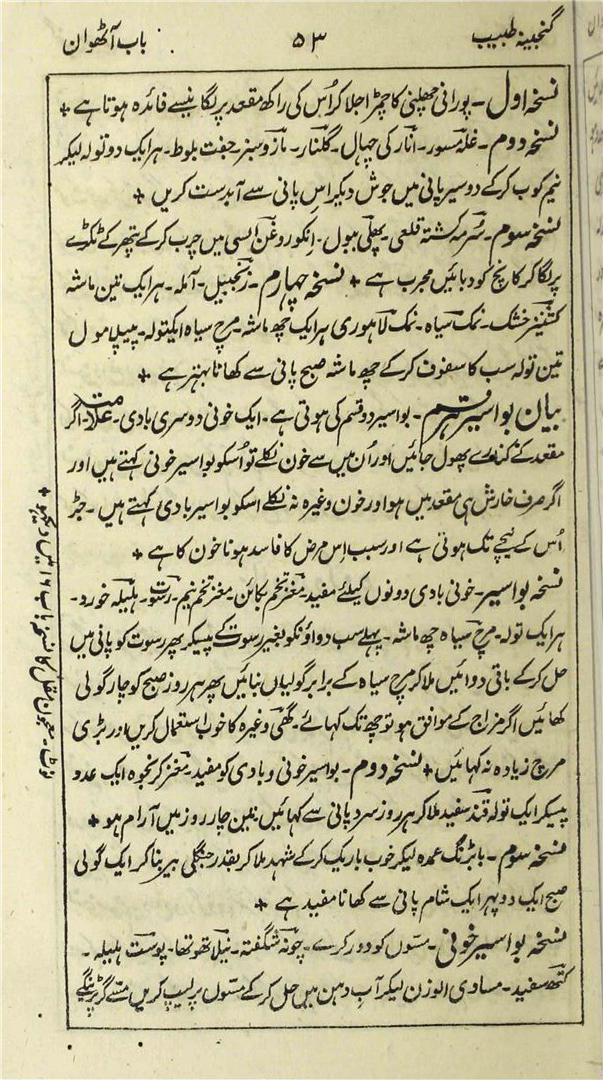 گنجینہ طبیب
۵۳
باب آٹھوان
نسخہ اول۔ پورانی چھلنی کا چمڑا جلا کر اُس کی راکھ مقعد پر لگانیسے فائدہ ہوتا ہے +
نسخہ دوم۔ غلہ مسور۔ انار کی چہال۔ گلنار۔ مازو سبز۔ جفت بلوط۔ ہر ایک دو تولہ لیکر
نیم کوب کر کے دو سیر پانی میں جوش دیکر اس پانی سے آبدست کریں +
نسخہ سوم۔ سرمہ کشتہ قلعی۔ پھلی ببول۔ انکو روغن السی میں چرب کر کے پتھر کے ٹکڑے
پر لگا کر کانچ کو دبائیں مجرب ہے + نسخہ چہارم۔ زنجبیل۔ آملہ۔ ہر ایک تین ماشہ
کشنیز خشک۔ نمک سیاہ۔ نمک لاہوری ہر ایک چھ ماشہ۔ مرچ سیاہ ایکتولہ۔ پیپلا مول
تین تولہ سب کا سفوف کر کے چھ ماشہ صبح پانی سے کھانا بہتر ہے +
بیان بواسیر قسم۔ بواسیر دو قسم کی ہوتی ہے۔ ایک خونی دوسری بادی۔ علامت اگر
مقعد کے کنارے پھول جائیں اور اُن میں سے خون نکلے تو اُسکو بواسیر خونی کہتے ہیں اور
اگر صرف خارش ہی مقعد میں ہو اور خون وغیرہ نہ نکلے اسکو بواسیر بادی کہتے ہیں۔ جڑ
اُس کے نیچے تک ہوتی ہے اور سبب اس مرض کا فاسد ہونا خون کا ہے +
نسخہ بواسیر۔ خونی بادی دونوں کیلئے مفید۔ مغز تخم بکائن۔ مغز تخم نیم۔ رسوت۔ ہلیلہ خورد۔
ہر ایک تولہ۔ مرچ سیاہ چھ ماشہ۔ پہلے سب دواؤنکو بغیر رسوت کے پیسکر پھر رسوت کو پانی میں
حل کر کے باقی دوائیں ملا کر مرچ سیاہ کے برابر گولیاں بنائیں پھر ہر روز صبح کو چار گولی
کھائیں اگر مزاج کے موافق ہو تو چھ تک کہائے۔ گھی وغیرہ کا خوب استعمال کریں اور بڑی
مرچ زیادہ نہ کہائیں + نسخہ دوم۔ بواسیر خونی و بادی کو مفید۔ مغز کرنجوہ ایک عدد
پیسکر ایک تولہ قند سفید ملا کر ہر روز سرد پانی سے کہائیں تین چار روز میں آرام ہو +
نسخہ سوم۔ بابڑنگ عمدہ لیکر خوب باریک کر کے شہد ملا کر بقدر جنگلی بیر بنا کر ایک گولی
صبح ایک دوپہر ایک شام پانی سے کھانا مفید ہے +
نسخہ بواسیر خونی۔ مسّوں کو دور کرے۔ چونہ شگفتہ۔ نیلا تھوتھا۔ پوست ہلیلہ۔
کتھ سفید۔ مساوی الوزن لیکر آب دہن میں حل کر کے مسّوں پر لیپ کریں مسّے گر پڑینگے
نوٹ۔ معجون مقل کا نسخہ باب ۱۶ میں دیکھو +